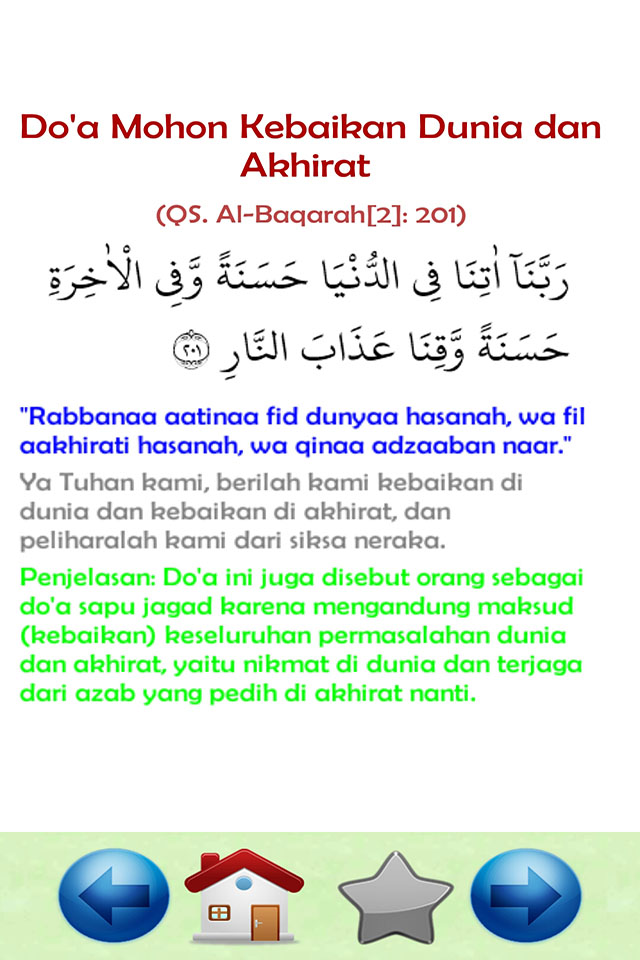 Do'a Mohon Kebaikan Dunia dan
Akhirat
(QS. Al-Baqarah[2]: 201)
رَبَّنَآ اٰتِنَا فِى الدُّنْيَا حَسَنَةً وَّفِى الْاٰخِرَةِ
حَسَنَةً وَّقِنَا عَذَابَ النَّارِ ٢٠١
"Rabbanaa aatinaa fid dunyaa hasanah, wa fil
aakhirati hasanah, wa qinaa adzaaban naar."
Ya Tuhan kami, berilah kami kebaikan di
dunia dan kebaikan di akhirat, dan
peliharalah kami dari siksa neraka.
Penjelasan: Do'a ini juga disebut orang sebagai
do'a sapu jagad karena mengandung maksud
(kebaikan) keseluruhan permasalahan dunia
dan akhirat, yaitu nikmat di dunia dan terjaga
dari azab yang pedih di akhirat nanti.